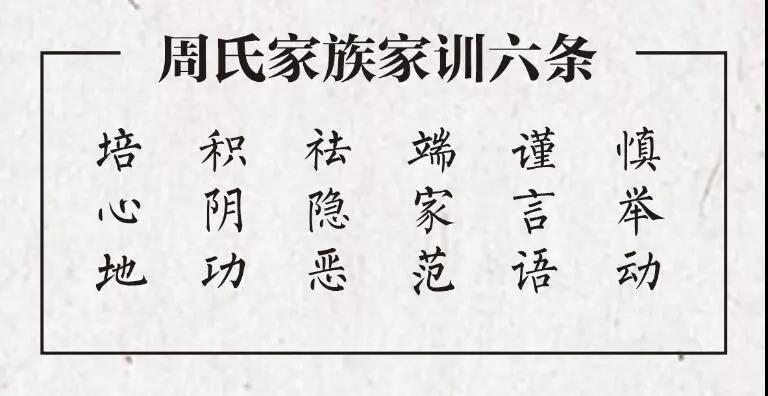 周氏家族家训六条
培心地
积阴功
祛隐恶
端家范
谨言语
慎举动